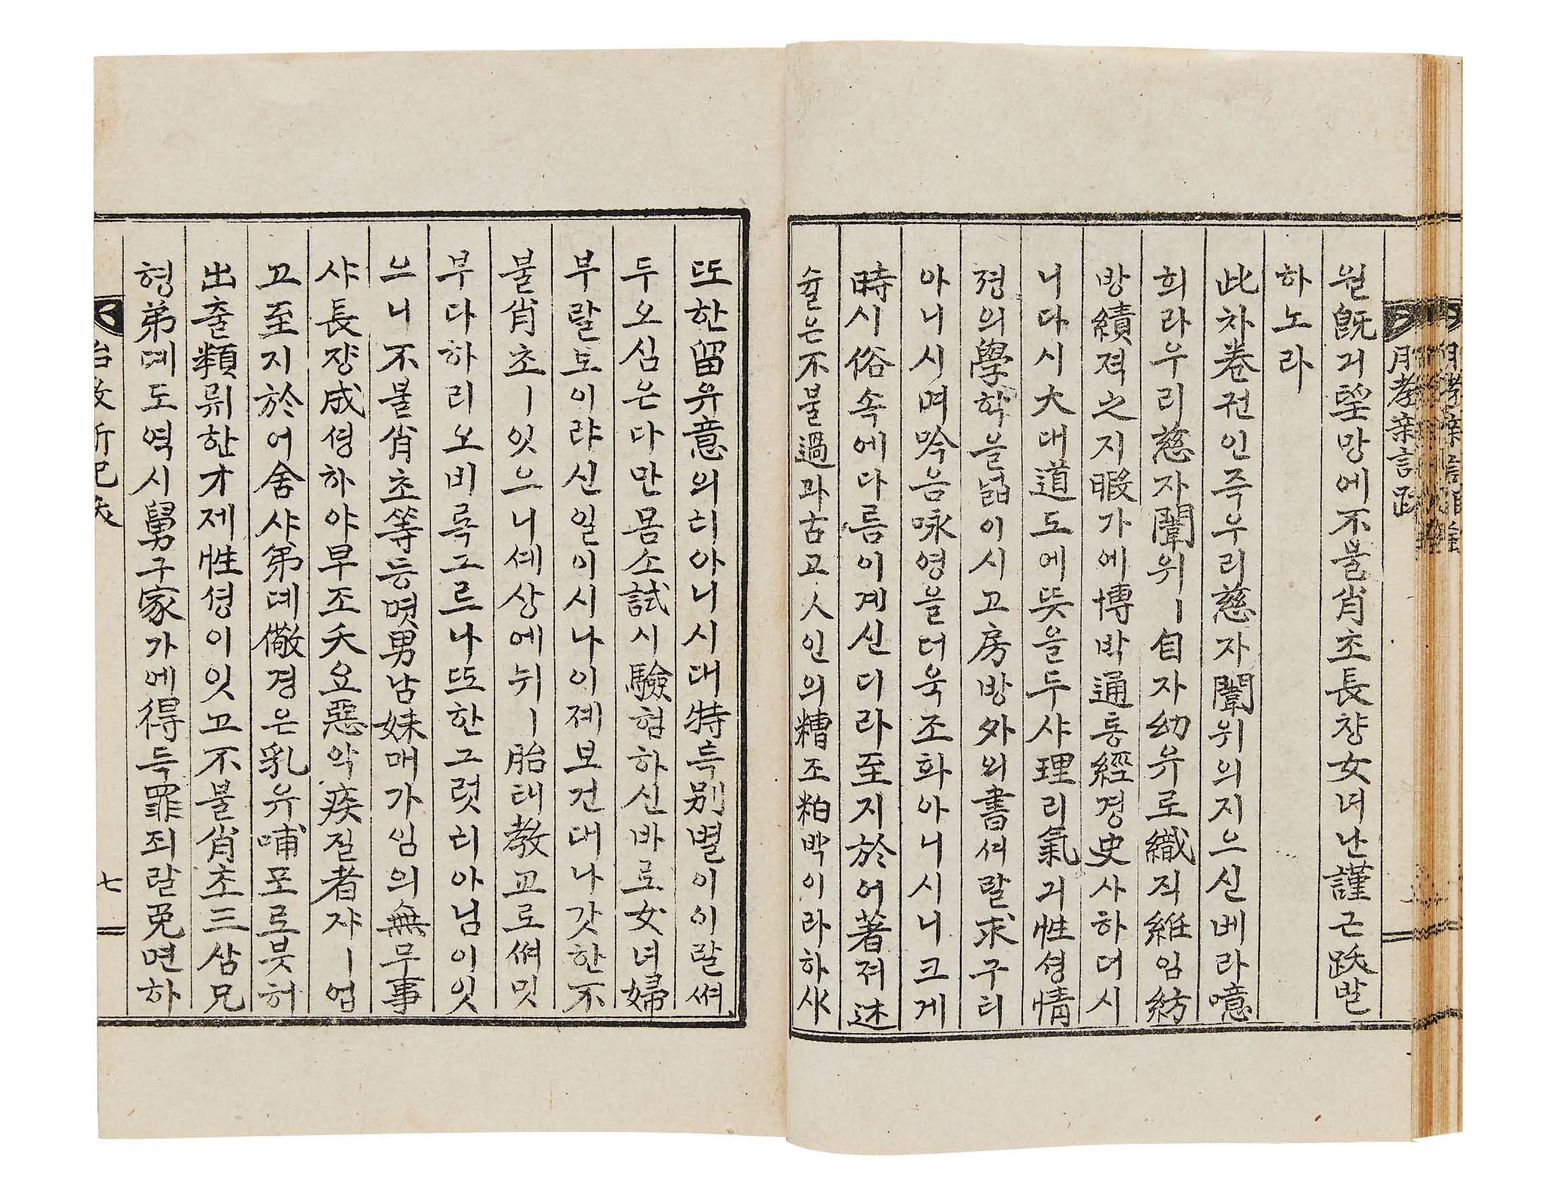 원旣긔望망에不불肖쵸長쟝女녀난謹근跋발
하노라
此차卷권인즉우리慈자闈위의지으신베라噫
희라우리慈자闈위ㅣ自자幼유로織직紝임紡
방績젹之지暇가에博박通통經경史사하더시
니다시大대道도에뜻을두샤理리氣긔性셩情
졍의學학을넓이시고房방外외書셔랄求구티
아니시며吟음咏영을더욱조화아니시니크게
時시俗속에다름이계신디라至지於어著져述
슐은不불過과古고人인의糟조粕박이라하샤
또한留유意의티아니시대特특別별이이랄쎠
두오심은다만몸소試시驗험하신바로女녀婦
부랄토이랴신일이시나이졔보건대나갓한不
불肖쵸ㅣ잇으니셰상에뉘ㅣ胎태敎교로쎠밋
부다하리오비록그르나또한그럿티아님이잇
으니不불肖쵸等등명男남妹매가심의無무事
샤長쟝成셩하야早조夭요惡악疾질者쟈ㅣ업
고至지於어舍샤弟뎨儆경은乳유哺포로븟허
出츌類뉴한才재性셩이잇고不불肖쵸三삼兄
형弟뎨도역시舅구家가에得득罪죄랄免면하
七